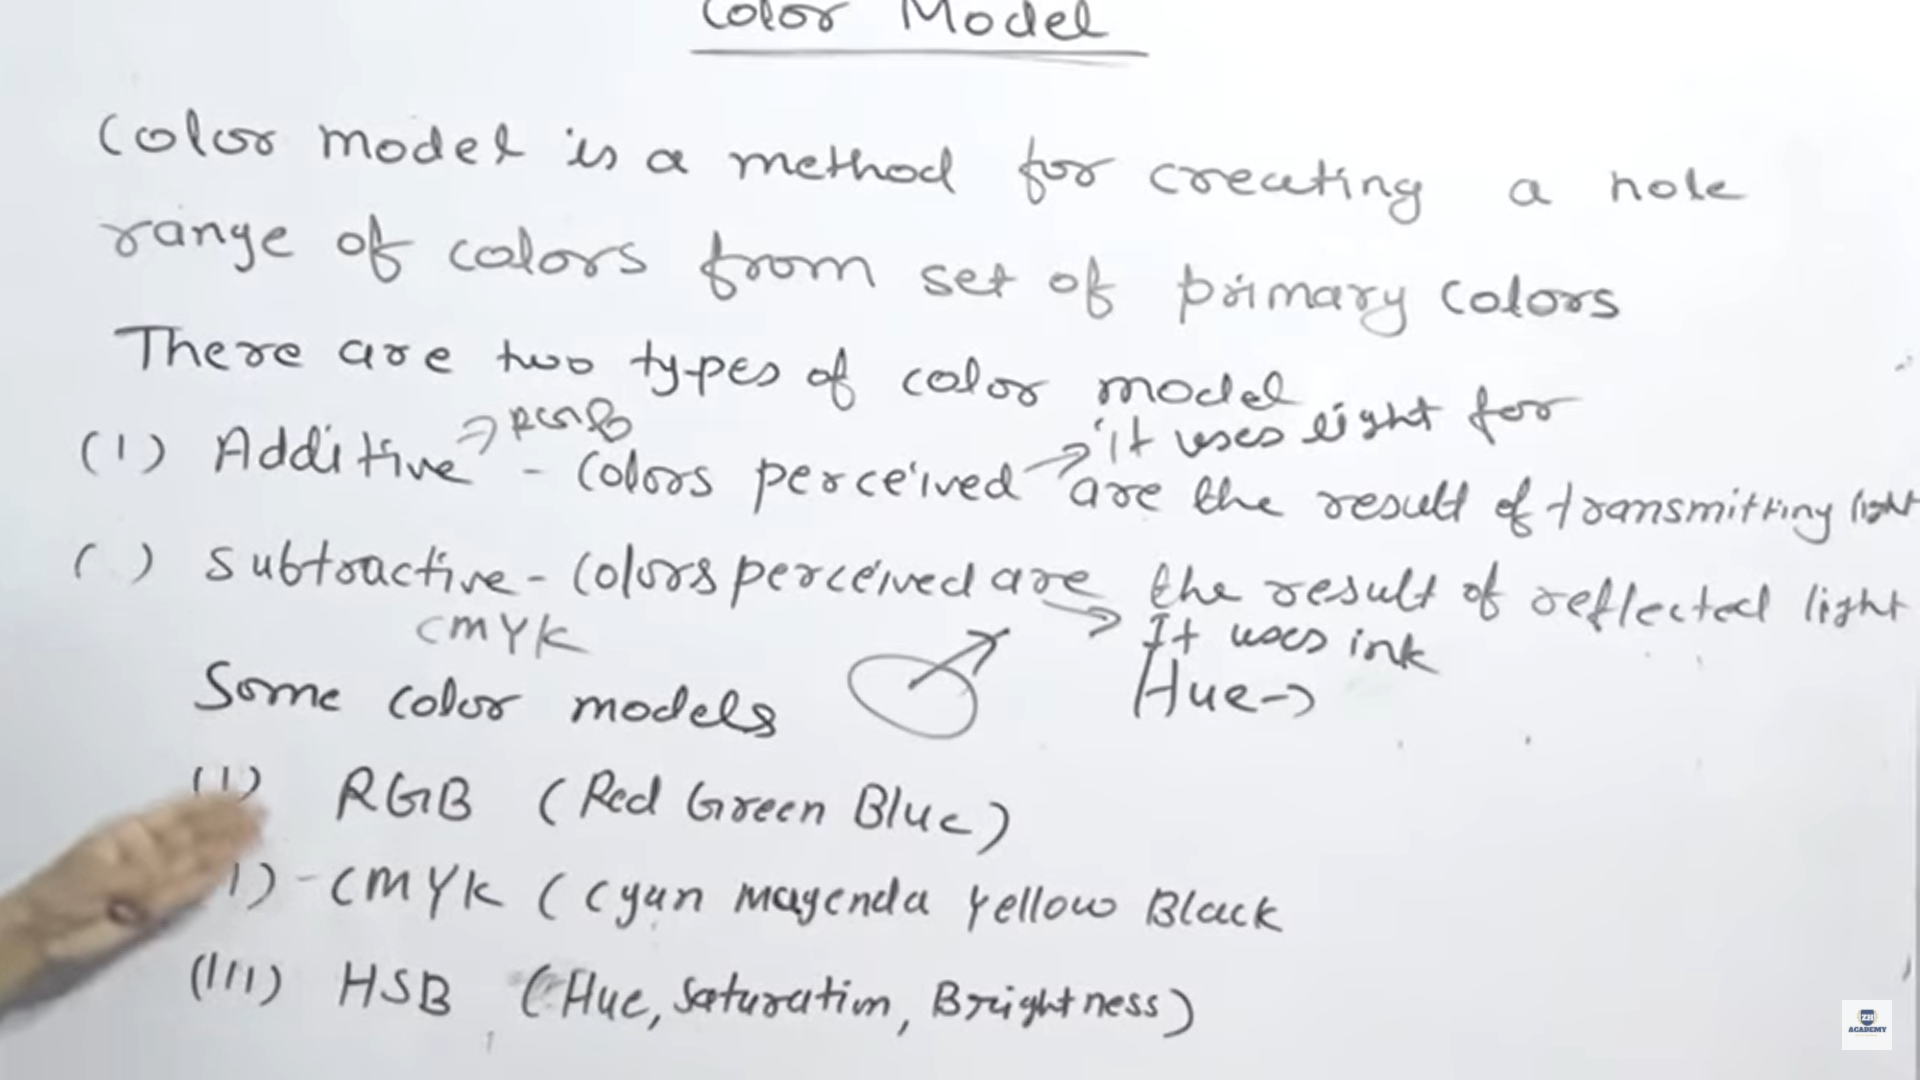 Color Model
Color model is a method for creating a hole
range of colors from set of primary colors
There are two types of color model
(1) Additive → RGB - Colors perceived are the result of transmitting light
→ it uses light for
( ) Subtractive - Colors perceived are the result of reflected light
CMYK
→ It uses ink
Hue →
Some color models
(I) RGB (Red Green Blue)
I) - CMYK (Cyan Magenda Yellow Black
(III) HSB (Hue, Saturation, Brightness)
ZH
ACADEMY